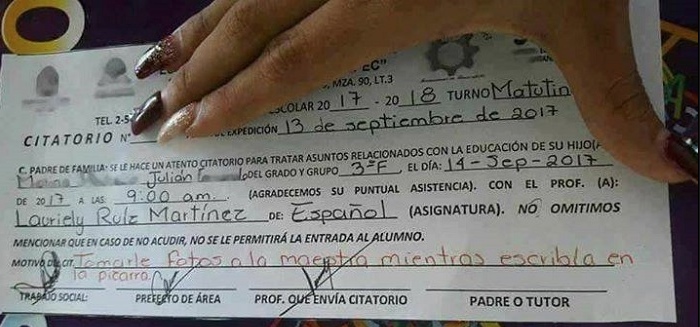 EC"
MZA. 90, LT.3
TEL. 2-5
COLAR 2017 - 2018 TURNO Matutin
CITATORIO N° EXPEDICIÓN 13 de septiembre de 2017
C. PADRE DE FAMILIA: SE LE HACE UN ATENTO CITATORIO PARA TRATAR ASUNTOS RELACIONADOS CON LA EDUCACIÓN DE SU HIJO(A
Julian DEL GRADO Y GRUPO 3ºF, EL DÍA: 14-Sep-2017
DE 2017 A LAS 9:00 am. (AGRADECEMOS SU PUNTUAL ASISTENCIA). CON EL PROF. (A):
Lauriely Ruiz Martínez DE: Español (ASIGNATURA). NO OMITIMOS
MENCIONAR QUE EN CASO DE NO ACUDIR, NO SE LE PERMITIRÁ LA ENTRADA AL ALUMNO.
MOTIVO DE CIT. Tomarle fotos a la maestra mientras escribía en
la pizarra
TRABAJO SOCIAL: PREFECTO DE ÁREA PROF. QUE ENVÍA CITATORIO PADRE O TUTOR